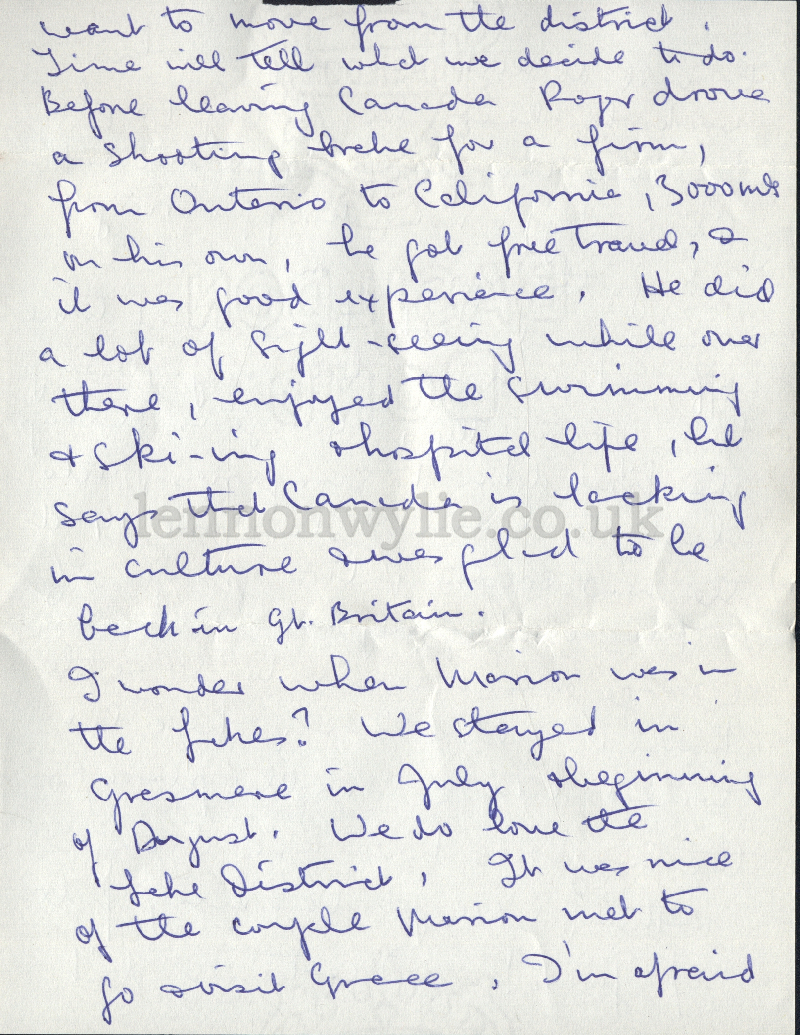 want to move from the district.
Time will tell what we decide to do.
Before leaving Canada Roger drove
a shooting brake for a firm,
from Ontario to California, 3000 mls
on his own, he got free travel, &
it was good experience. He did
a lot of sight-seeing while over
there, enjoyed the swimming
& ski-ing & hospital life, but
says that Canada is lacking
in culture & was glad to be
back in Gt. Britain.
I wonder when Marion was in
the Lakes? We stayed in
Grasmere in July & beginning
of August. We do love the
Lake District. It was nice
of the couple Marion met to
go & visit Grace. I'm afraid
lennonwylie.co.uk